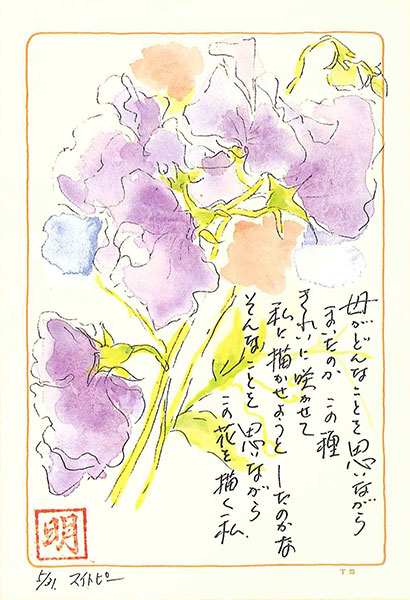 母がどんなことを思いながら
まいたのか この種
きれいに咲かせて
私に描かせようとしたのかな
そんなことを 思いながら
この花を描く私
明
5/21. スイトピー
TS